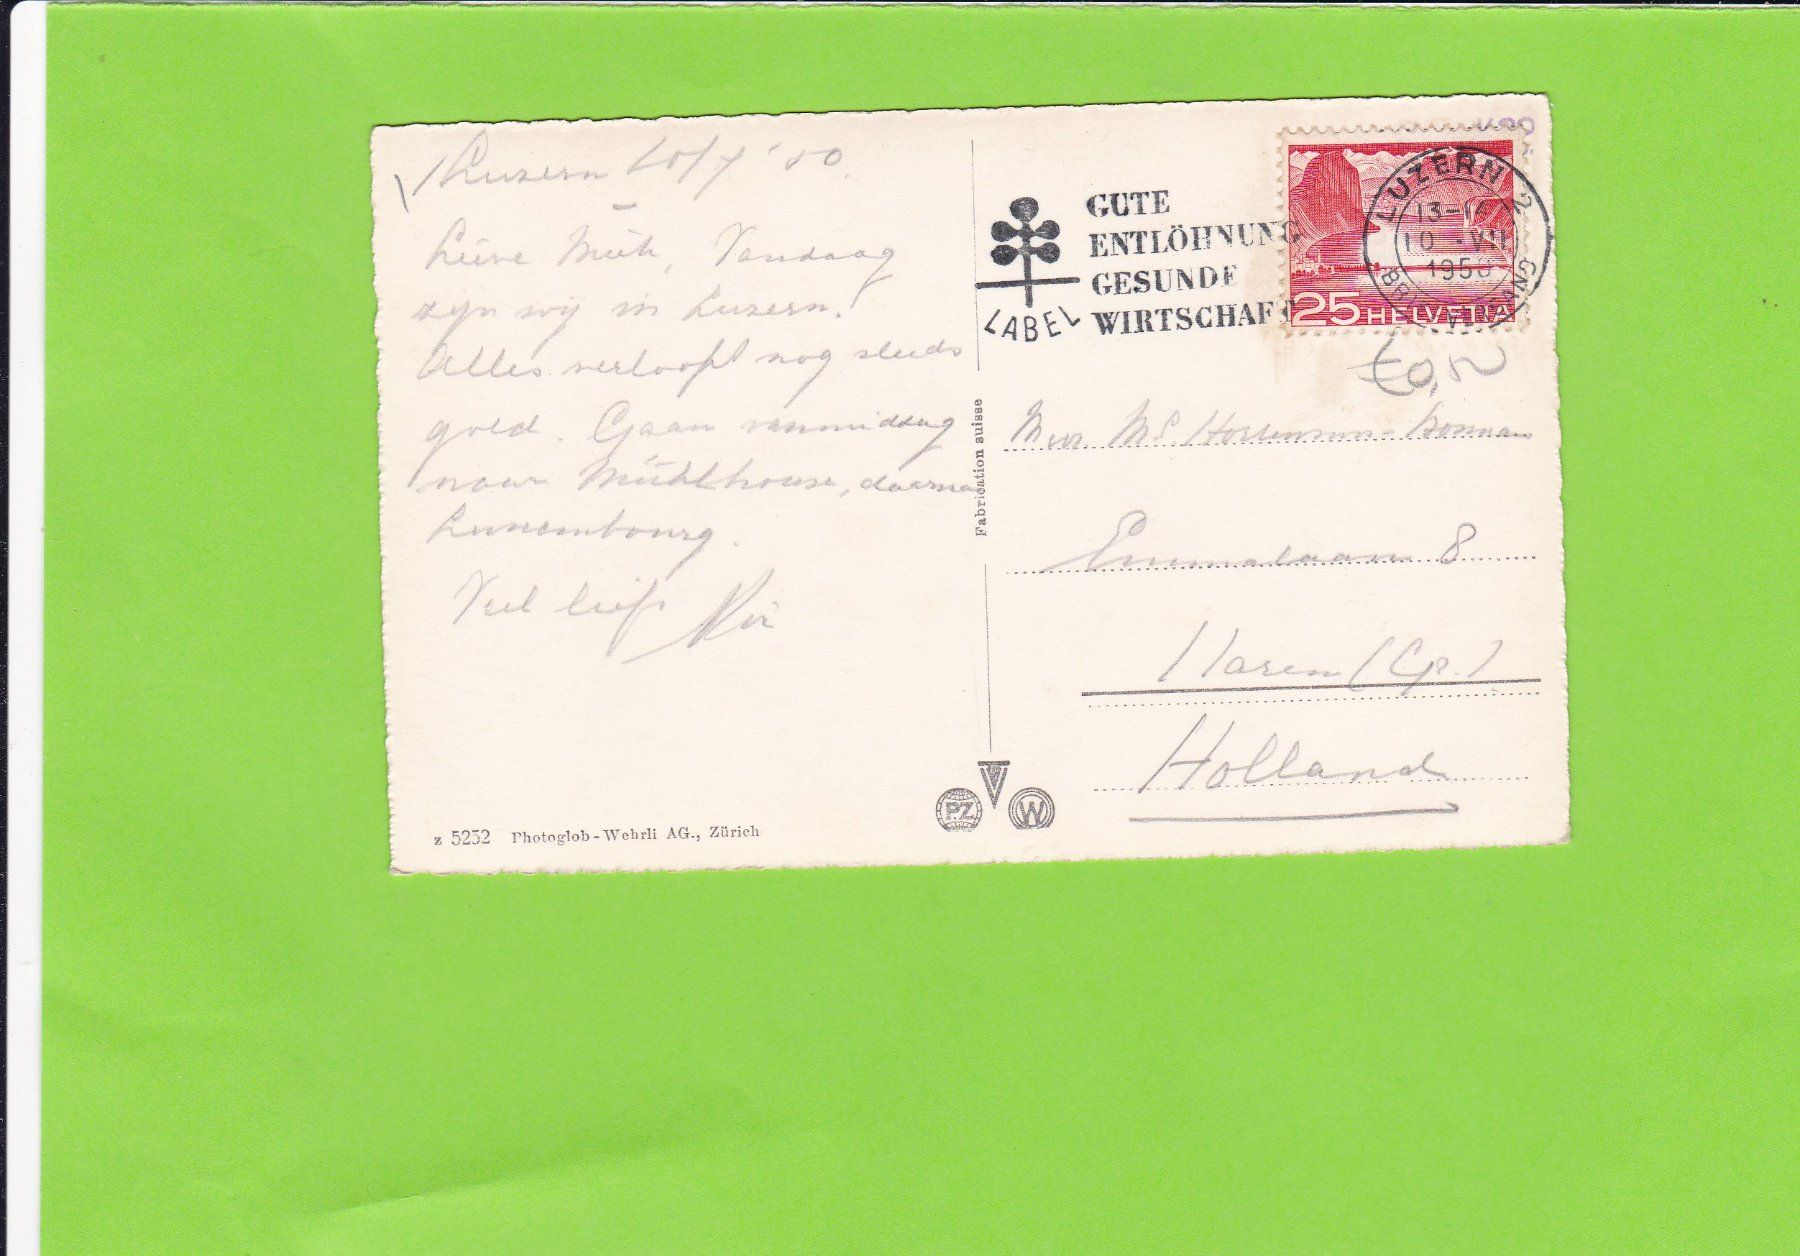 Luzern 10/7 '50.
Lieve Miek, Vandaag
zijn wij in Luzern.
Alles verloopt nog steeds
goed. Gaan vanmiddag
naar Mühlhouse, daarna
Luxembourg.
Veel liefs
GUTE
ENTLÖHNUNG
GESUNDE
WIRTSCHAFT
LABEL
LUZERN 2
13-14
10. VII
1950
25 HELVETIA
Mevr.
Emmalaan 8
Haren (Gr.)
Holland
Fabrication suisse
P.Z
W
z 5252 Photoglob-Wehrli AG., Zürich